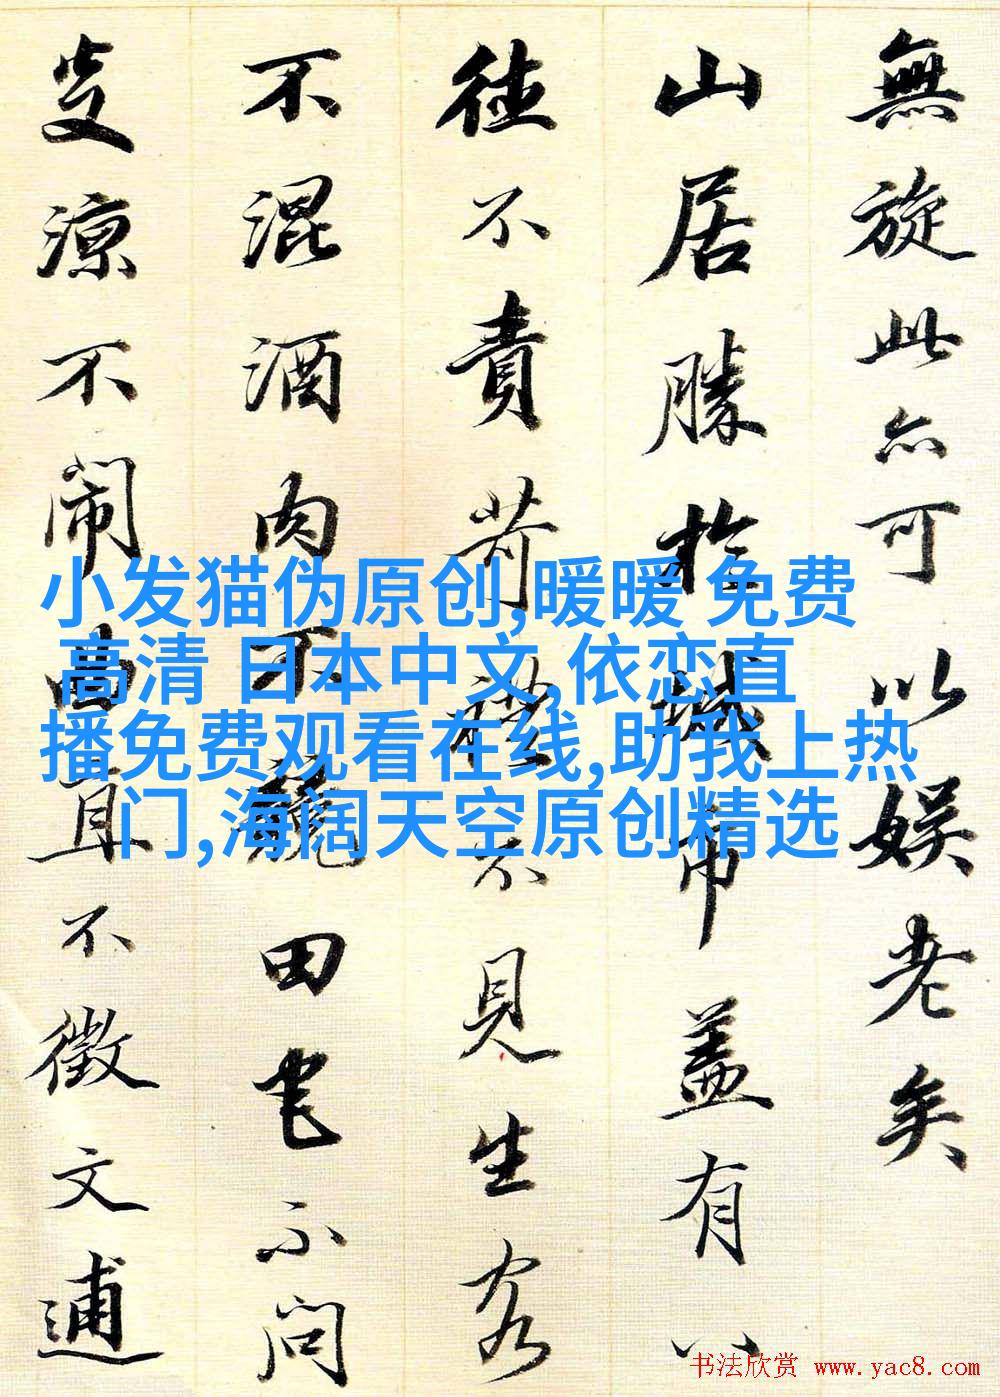 無旋此亦可以娱老矣
山居勝於城市盖有八
徃不責苛禮不見生客
不混酒肉不競田宅不问
炎涼不闹曲直不徵文逋
小发猫伪原创,暖暖 免费
高清 日本中文,依恋直
播免费观看在线,助我上热
门,海阔天空原创精选
书法欣赏 www.yac8.com